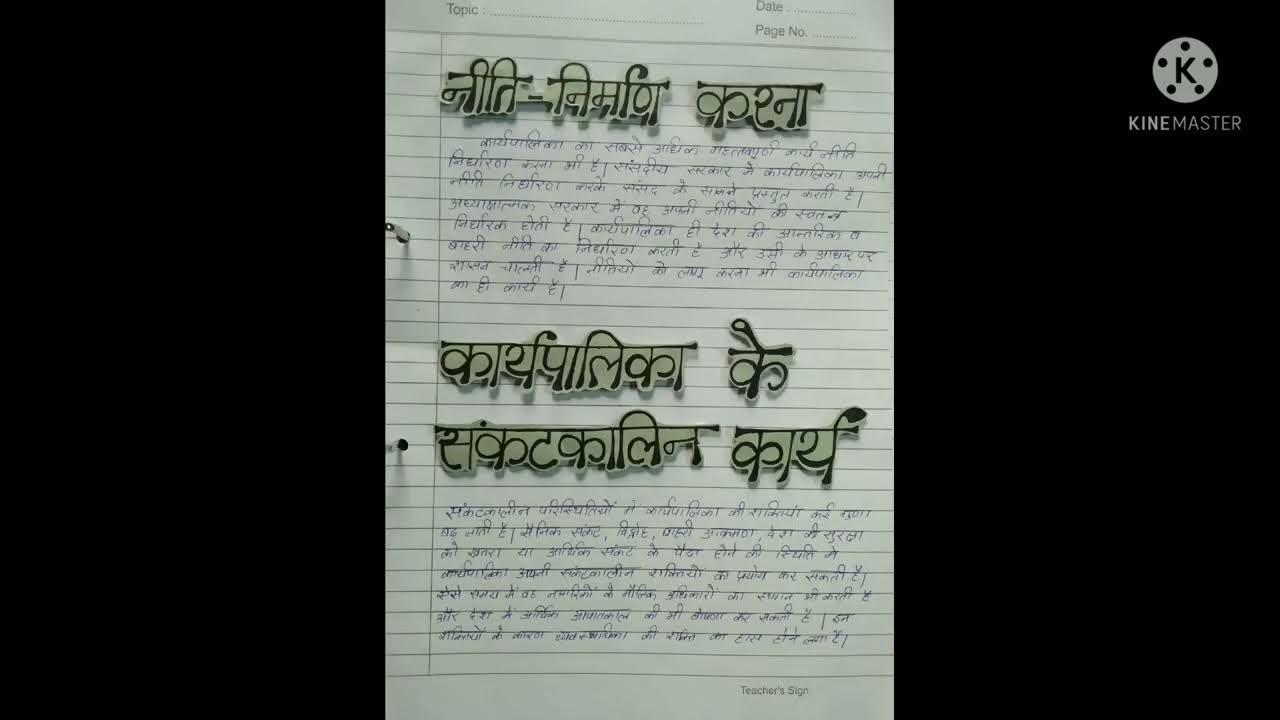 Topic :
Date :
Page No.
नीति-निर्माण करना
कार्यपालिका का सबसे अधिक महत्वपूर्ण कार्य नीति
निर्धारण करना भी है। संसदीय सरकार में कार्यपालिका अपनी
नीति निर्धारण करके संसद के सामने प्रस्तुत करती है।
अध्यक्षात्मक सरकार में वह अपनी नीतियों की स्वतन्त्र
निर्धारक होती है। कार्यपालिका ही देश की आन्तरिक व
बाहरी नीति का निर्धारण करती है और उसी के आधार पर
शासन चालती है। नीतियों को लागू करना भी कार्यपालिका
का ही कार्य है।
कार्यपालिका के
संकटकालिन कार्य
संकटकालीन परिस्थितियों में कार्यपालिका की शक्तियां कई गुणा
बढ़ जाती है। सैनिक संकट, विद्रोह, बाहरी आक्रमण, देश की सुरक्षा
को खतरा या आर्थिक संकट के पैदा होने की स्थिति में
कार्यपालिका अपनी संकटकालीन शक्तियों का प्रयोग कर सकती है।
ऐसे समय में वह नागरिकों के मौलिक अधिकारों का स्थगन भी करती है
और देश में आर्थिक आपातकाल की भी घोषणा कर सकती है। इन
शक्तियों के कारण व्यवस्थापिका की शक्ति का ह्रास होने लगा है।
Teacher's Sign
KINEMASTER